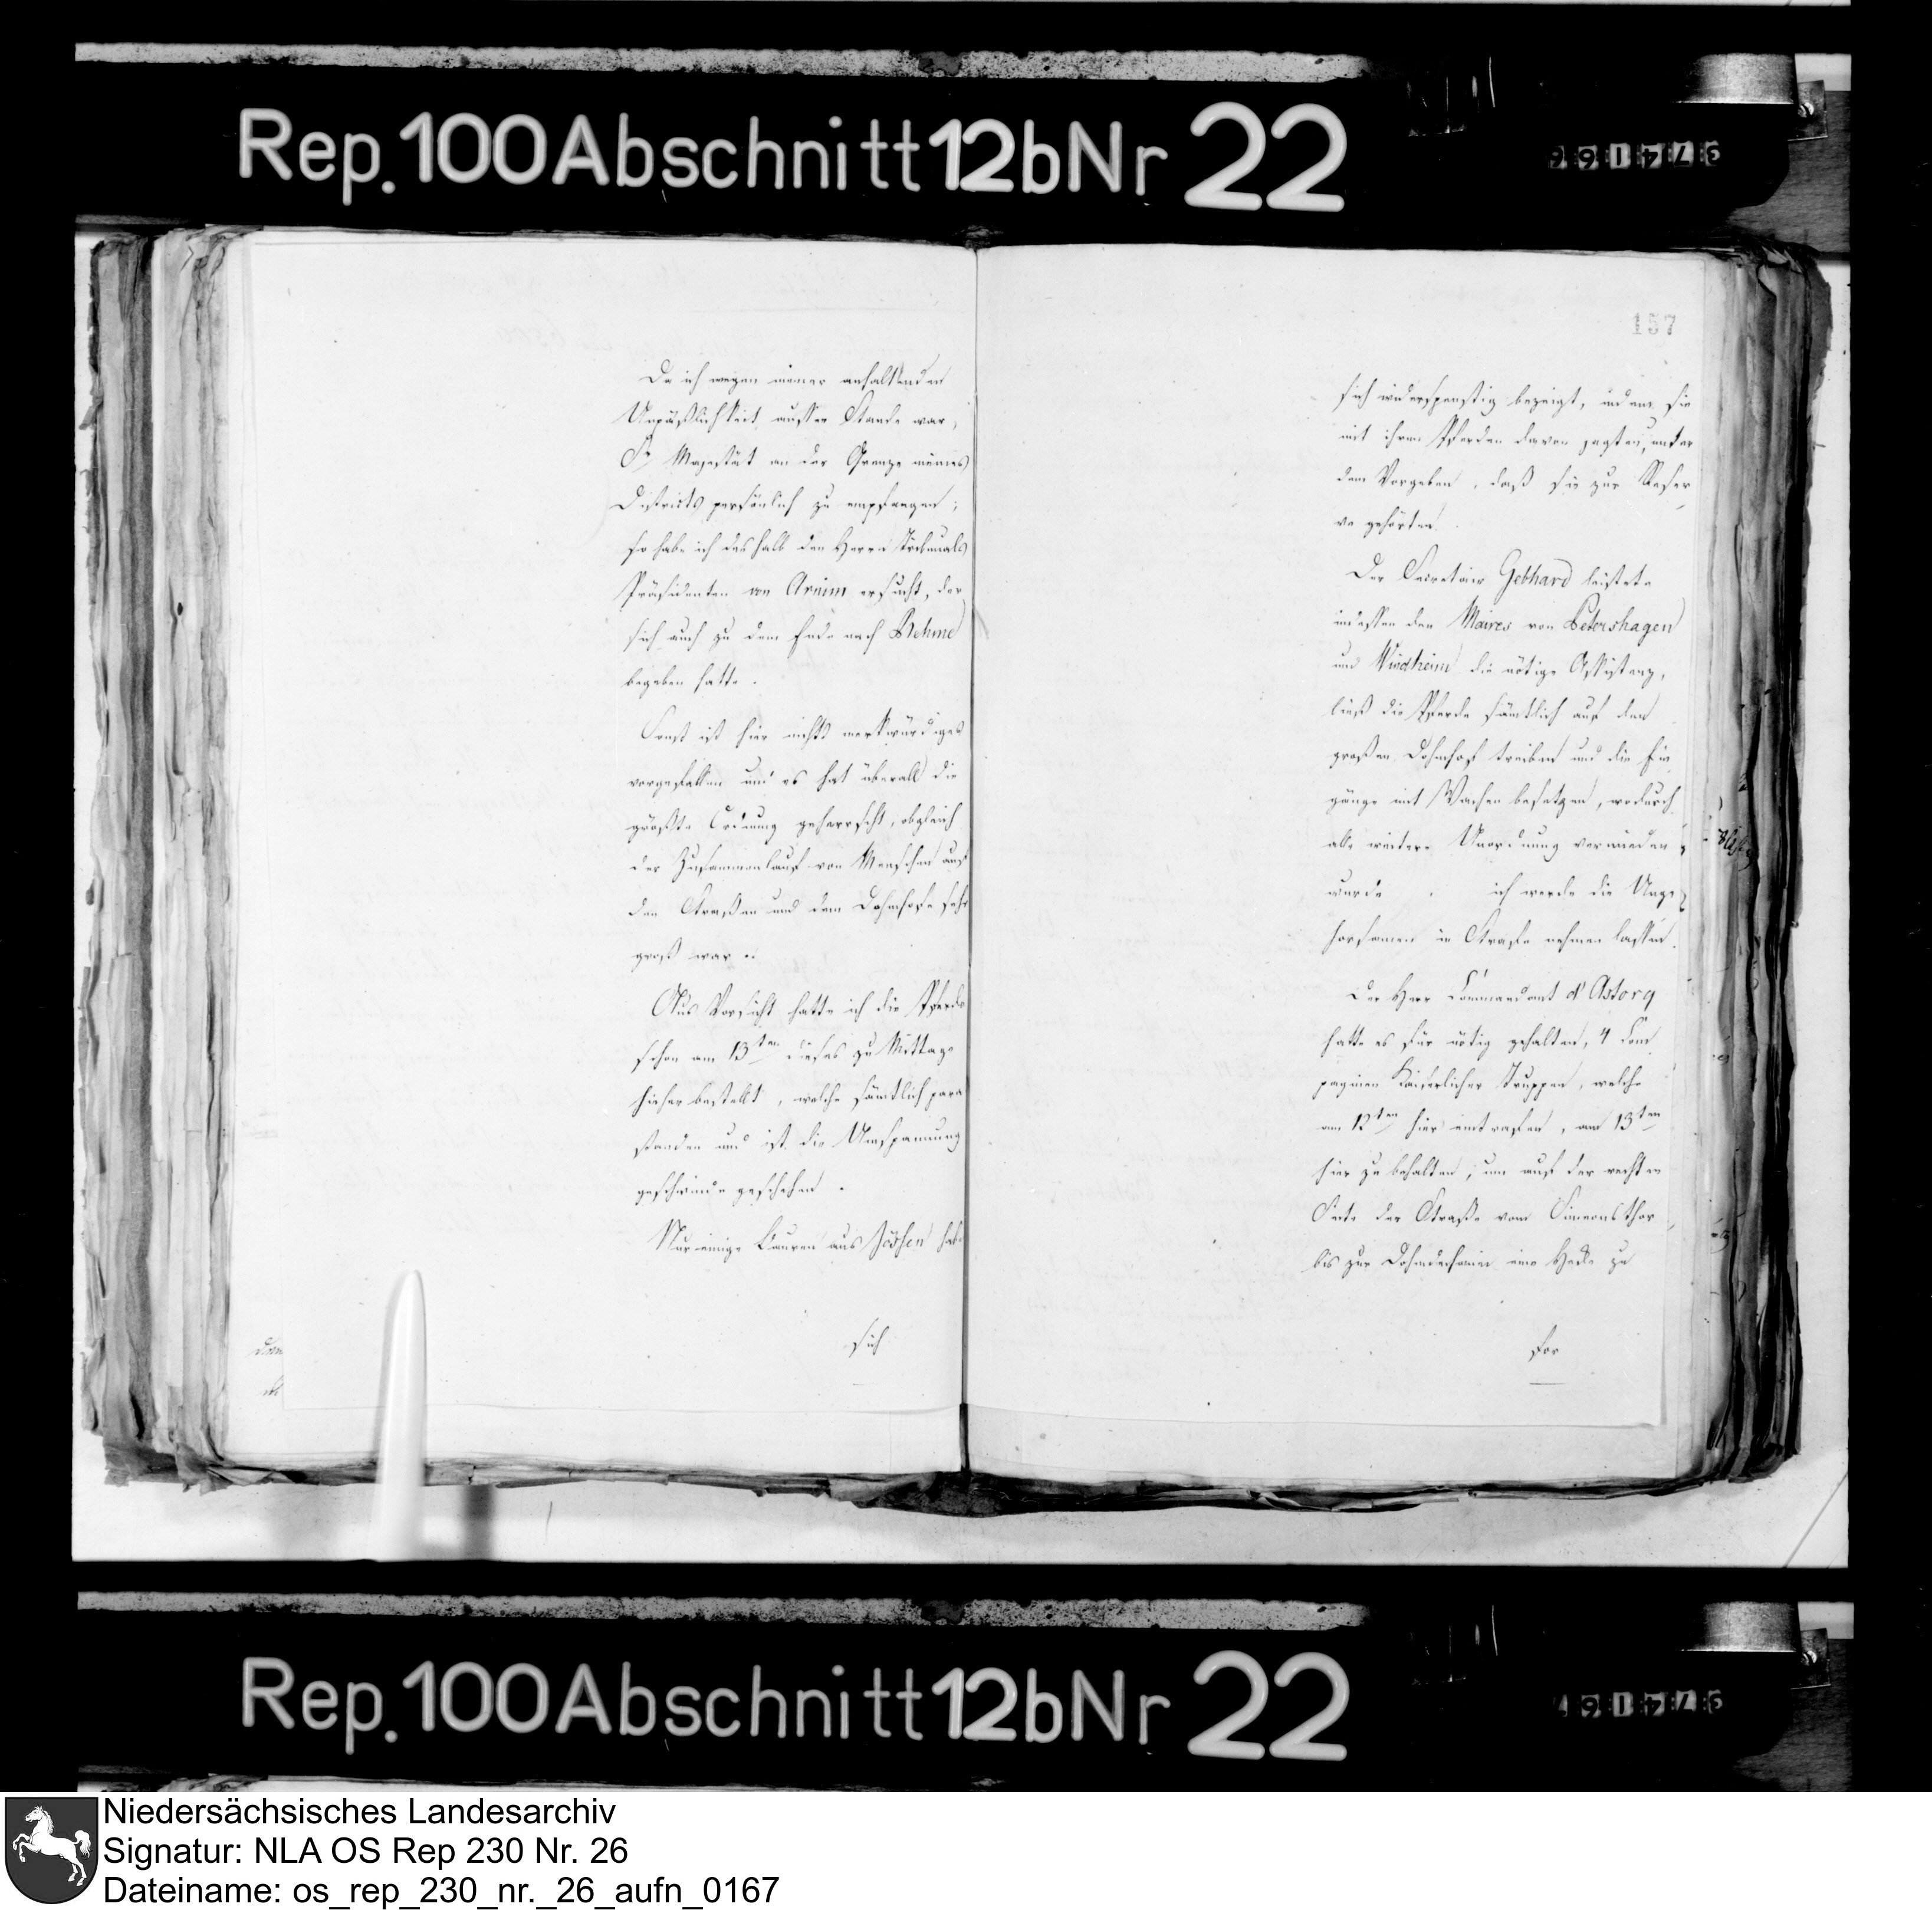 Rep. 100 Abschnitt 12b Nr 22
974166
Da ich wegen meiner anhaltenden
Unpäßlichkeit ausser Stande war,
Sr Majestät an der Grenze meines
Districts persönlich zu empfangen;
so habe ich deshalb den Herrn Tribunals
Präsidenten von Arnim ersucht, der
sich auch zu dem Ende nach Rehme
begeben hatte.
Sonst ist hier nichts merkwürdiges
vorgefallen und es hat überall die
größte Ordnung geherrscht, obgleich
der Zusammenlauf von Menschen auf
den Straßen und dem Dohmhofe sehr
groß war.
Aus Vorsicht hatte ich die Pferde
schon am 13ten dieses zu Mittage
hieher bestellt, welche sämtlich parat
standen und ist die Umspannung
geschwinde geschehen.
Nur einige Bauren aus Jössen habe
sich
157
sich widerspenstig bezeigt, indem sie
mit ihren Pferden davon jagten, unter
dem Vorgeben, daß sie zur Reser
ve gehörten.
Der Secretair Gebhard leistete
indessen den Maires von Petershagen
und Windheim die nötige Assistenz,
ließ die Pferde sämtlich auf den
großen Dohmhof treiben und die Ein
gänge mit Wachen besetzen, wodurch
alle weitere Unordnung vermieden
wurde. ich werde die Unge
horsamen in Strafe nehmen lassen.
Der Herr Commandant d'Astorg
hatte es für nötig gehalten, 4 Com
pagnien Kaiserlicher Truppen, welche
am 12ten hier eintrafen, am 13ten
hier zu behalten, um auf der rechten
Seite der Straße vom Simeonsthor
bis zur Dohmdechanei eine Hecke zu
for
Rep. 100 Abschnitt 12b Nr 22
974167
Niedersächsisches Landesarchiv
Signatur: NLA OS Rep 230 Nr. 26
Dateiname: os_rep_230_nr._26_aufn_0167